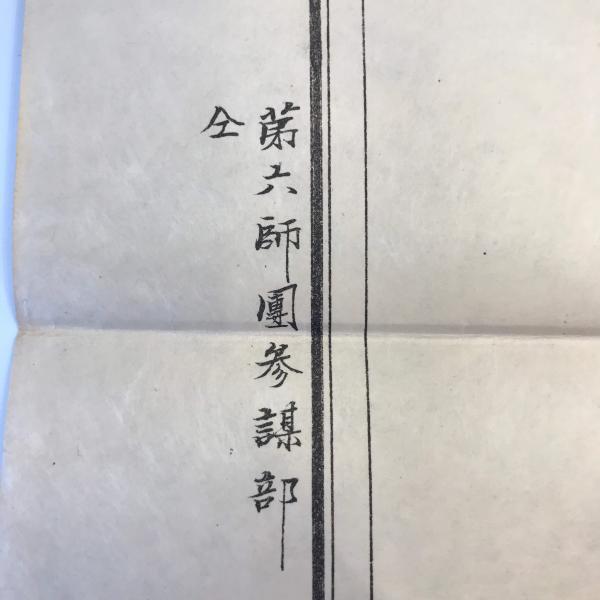 第六師團参謀部
仝